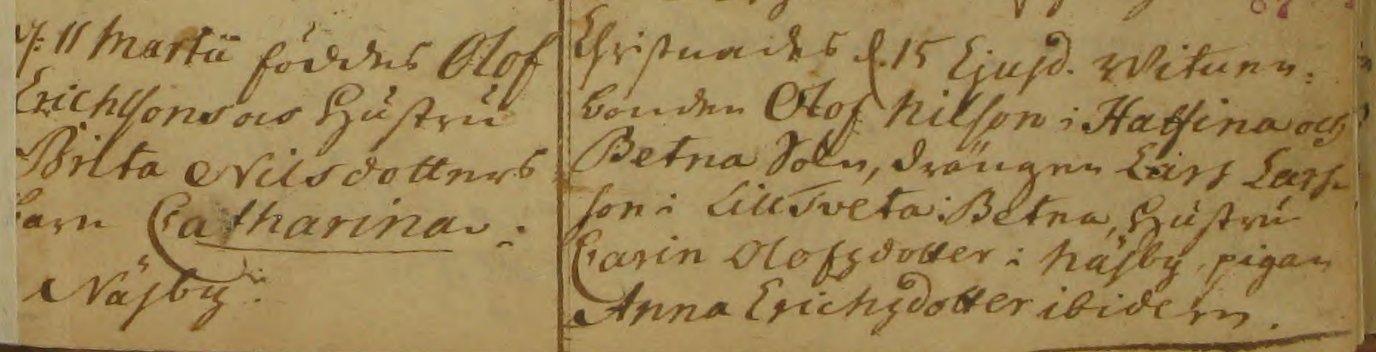 d. 11 Martii föddes Olof
Erichssons os Hustru
Brita Nilsdotters
barn Catharina i
Näsby.
Christnades d. 15 Ejusd. Witnen:
bonden Olof Nilsson i Haffina och
Betna Soln, drängen Lars Lars-
son i Lillsveta Betna, Hustru
Carin Olofsdotter i Näsby, pigan
Anna Erichsdotter ibidem.